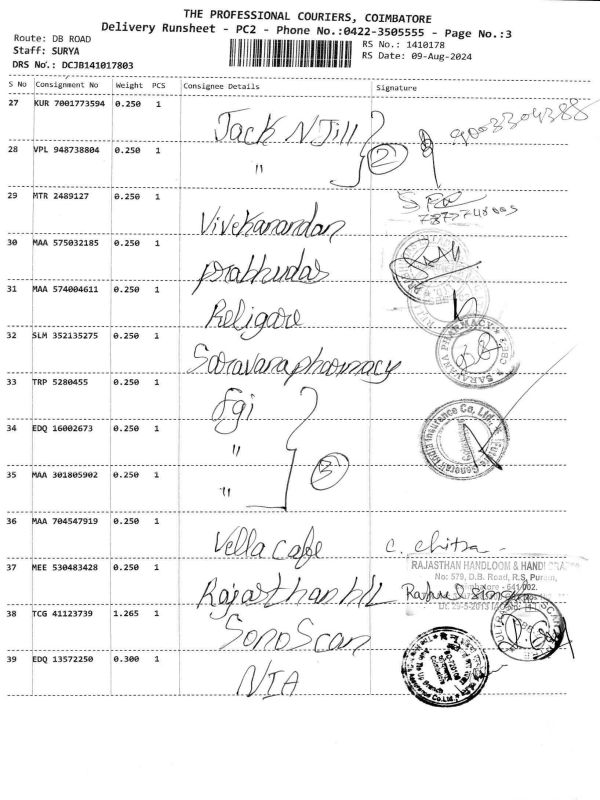 THE PROFESSIONAL COURIERS, COIMBATORE
Delivery Runsheet - PC2 - Phone No.:0422-3505555 - Page No.:3
Route: DB ROAD
RS No.: 1410178
Staff: SURYA
RS Date: 09-Aug-2024
DRS No.: DCJB141017803
S No Consignment No Weight PCS Consignee Details Signature
27 KUR 7001773594 0.250 1 Jack N Jill 9003304388
28 VPL 948738804 0.250 1 " 2
29 MTR 2489127 0.250 1 Vivekanandan
30 MAA 575032185 0.250 1 Prabhudas
31 MAA 574004611 0.250 1 Religare
32 SLM 352135275 0.250 1 Saravana pharmacy
SARAVANA PHARMACY
33 TRP 5280455 0.250 1 Fgi
34 EDQ 16002673 0.250 1 "
Future Generali India Insurance Co. Ltd.
35 MAA 301805902 0.250 1 " 3
36 MAA 704547919 0.250 1 Vella cafe C. Chitra
37 MEE 530483428 0.250 1 Rajasthan H/L
RAJASTHAN HANDLOOM & HANDI
No: 579, D.B. Road, R.S. Puram,
Coimbatore - 641 002.
38 TCG 41123739 1.265 1 Sono Scan
39 EDQ 13572250 0.300 1 NIA